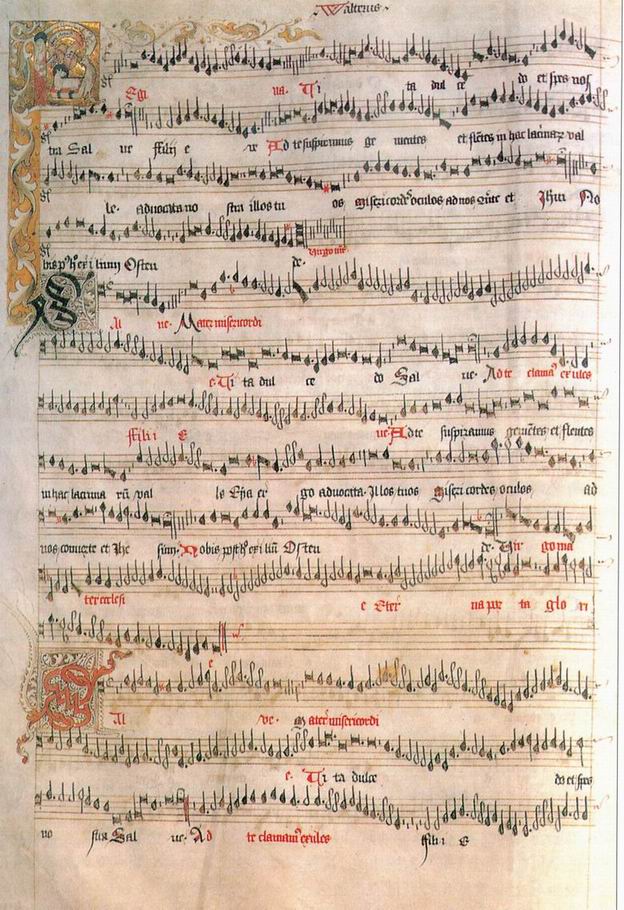 Walterus
Egi na. Ti ta dul ce do et spes nos
tra Sal ue ffilij e ve Ad te suspiramus ge mentes et flētes in hac lacimaꝝ val
le. aduocata no stra illos tu os misericordes oculos ad nos et Jhm No
bis p⁹ h exi lium Osten de. virgo
Al ue. Mater misericordi
e Ti ta dul ce do Sal ue. Ad te clamam⁹ exules
ffili i E ue. Ad te suspiramus gemētes et flentes
in hac lacrima rū val le Eya er go aduocata. Illos tuos Miseri cordes oculos, ad
nos conuerte et Jhe sum. Nobis post h exi liū Osten de. Vir go ma
ter ecclesi e Eter na por ta glo ri
Al ve. Mater misericordi
e. Ti ta dulce do et spes
no stra Sal ue. Ad te clamam⁹ exules ffili i E